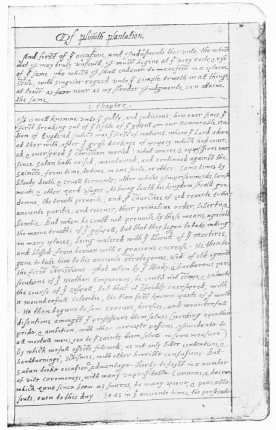 Of plimoth plantation.
And first of ye occasion, and Indusments ther unto; the which
that I may truly unfould, I must begine at ye very roote & rise
of ye same. The which I shall endevor to manefest in a plaine
stile; with singuler regard unto ye simple trueth in all things,
at least as far near as my slender Judgmente can attaine
the same.
1. Chapter.
It is well knowne unto ye godly, and judicious, how ever since ye
first breaking out of ye lighte of ye gospell, in our Honourable Na-
tion of England (which was ye first of nations, whom ye Lord adorn-
ed ther with, after yt grosse darknes of popery which had cover-
ed & overspred ye christian world) what warrs, & opposissions ever
since Satan hath raised, maintained, and continued against the
saincts, from time, to time, in one sorte, or other. Some times by
bloody death & cruell torments; other whiles Imprisonments, banish-
ments, & other hard usages. As being loath his kingdom should goe
downe, the trueth prevaile; and ye Churches of God reverte to their
anciente puritie; and recover, their primative order, libertie, &
bewtie. But when he could not prevaile by these means, against
the maine trueths of ye gospell, but that they began to take rootting
in many places; being watered with ye bloud of ye martires,
and blessed from heaven with a gracious encrease. He then be-
gane to take him to his anciente strategemes, used of old against
the first christians. That when by ye bloody, & barbarous per-
secutions of ye Heathen Emperours, he could not stoppe, & subverte
the course of ye Gospell; but that it speedily overspred, with
a wounderfull celeritie, the then best known parts of ye world.
He then begane to sow errours, heresies, and wounderfull
disentions amongst ye proffessors them selves (working upon their
pride, & ambition, with other corrupte passions, Incidente to
all mortall men; yea to ye saints them selves in some measure)
by which wofull effects followed; as not only bitter contentions, &
hartburnings, schismes, with other horrible confusions. But
Satan tooke occasion & advantage therby to foyst in a number
of vile ceremoneys, with many unprofitable Cannons, & decrees
which have since been as snares, to many poore, & peaceable
souls, even to this day. So as in ye anciente times, the persecuti-